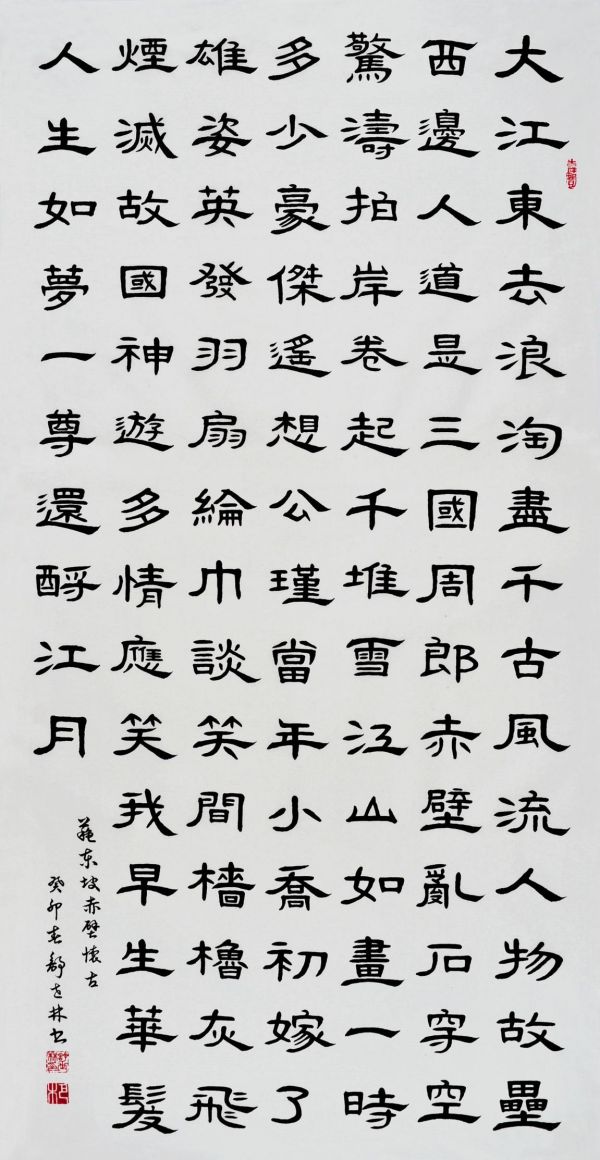 大江東去浪淘盡千古風流人物故壘
西邊人道是三國周郎赤壁亂石穿空
驚濤拍岸卷起千堆雪江山如畫一時
多少豪傑遙想公瑾當年小喬初嫁了
雄姿英發羽扇綸巾談笑間檣櫓灰飛
煙滅故國神遊多情應笑我早生華髮
人生如夢一尊還酹江月
蘇东坡赤壁懷古
癸卯春舒林书